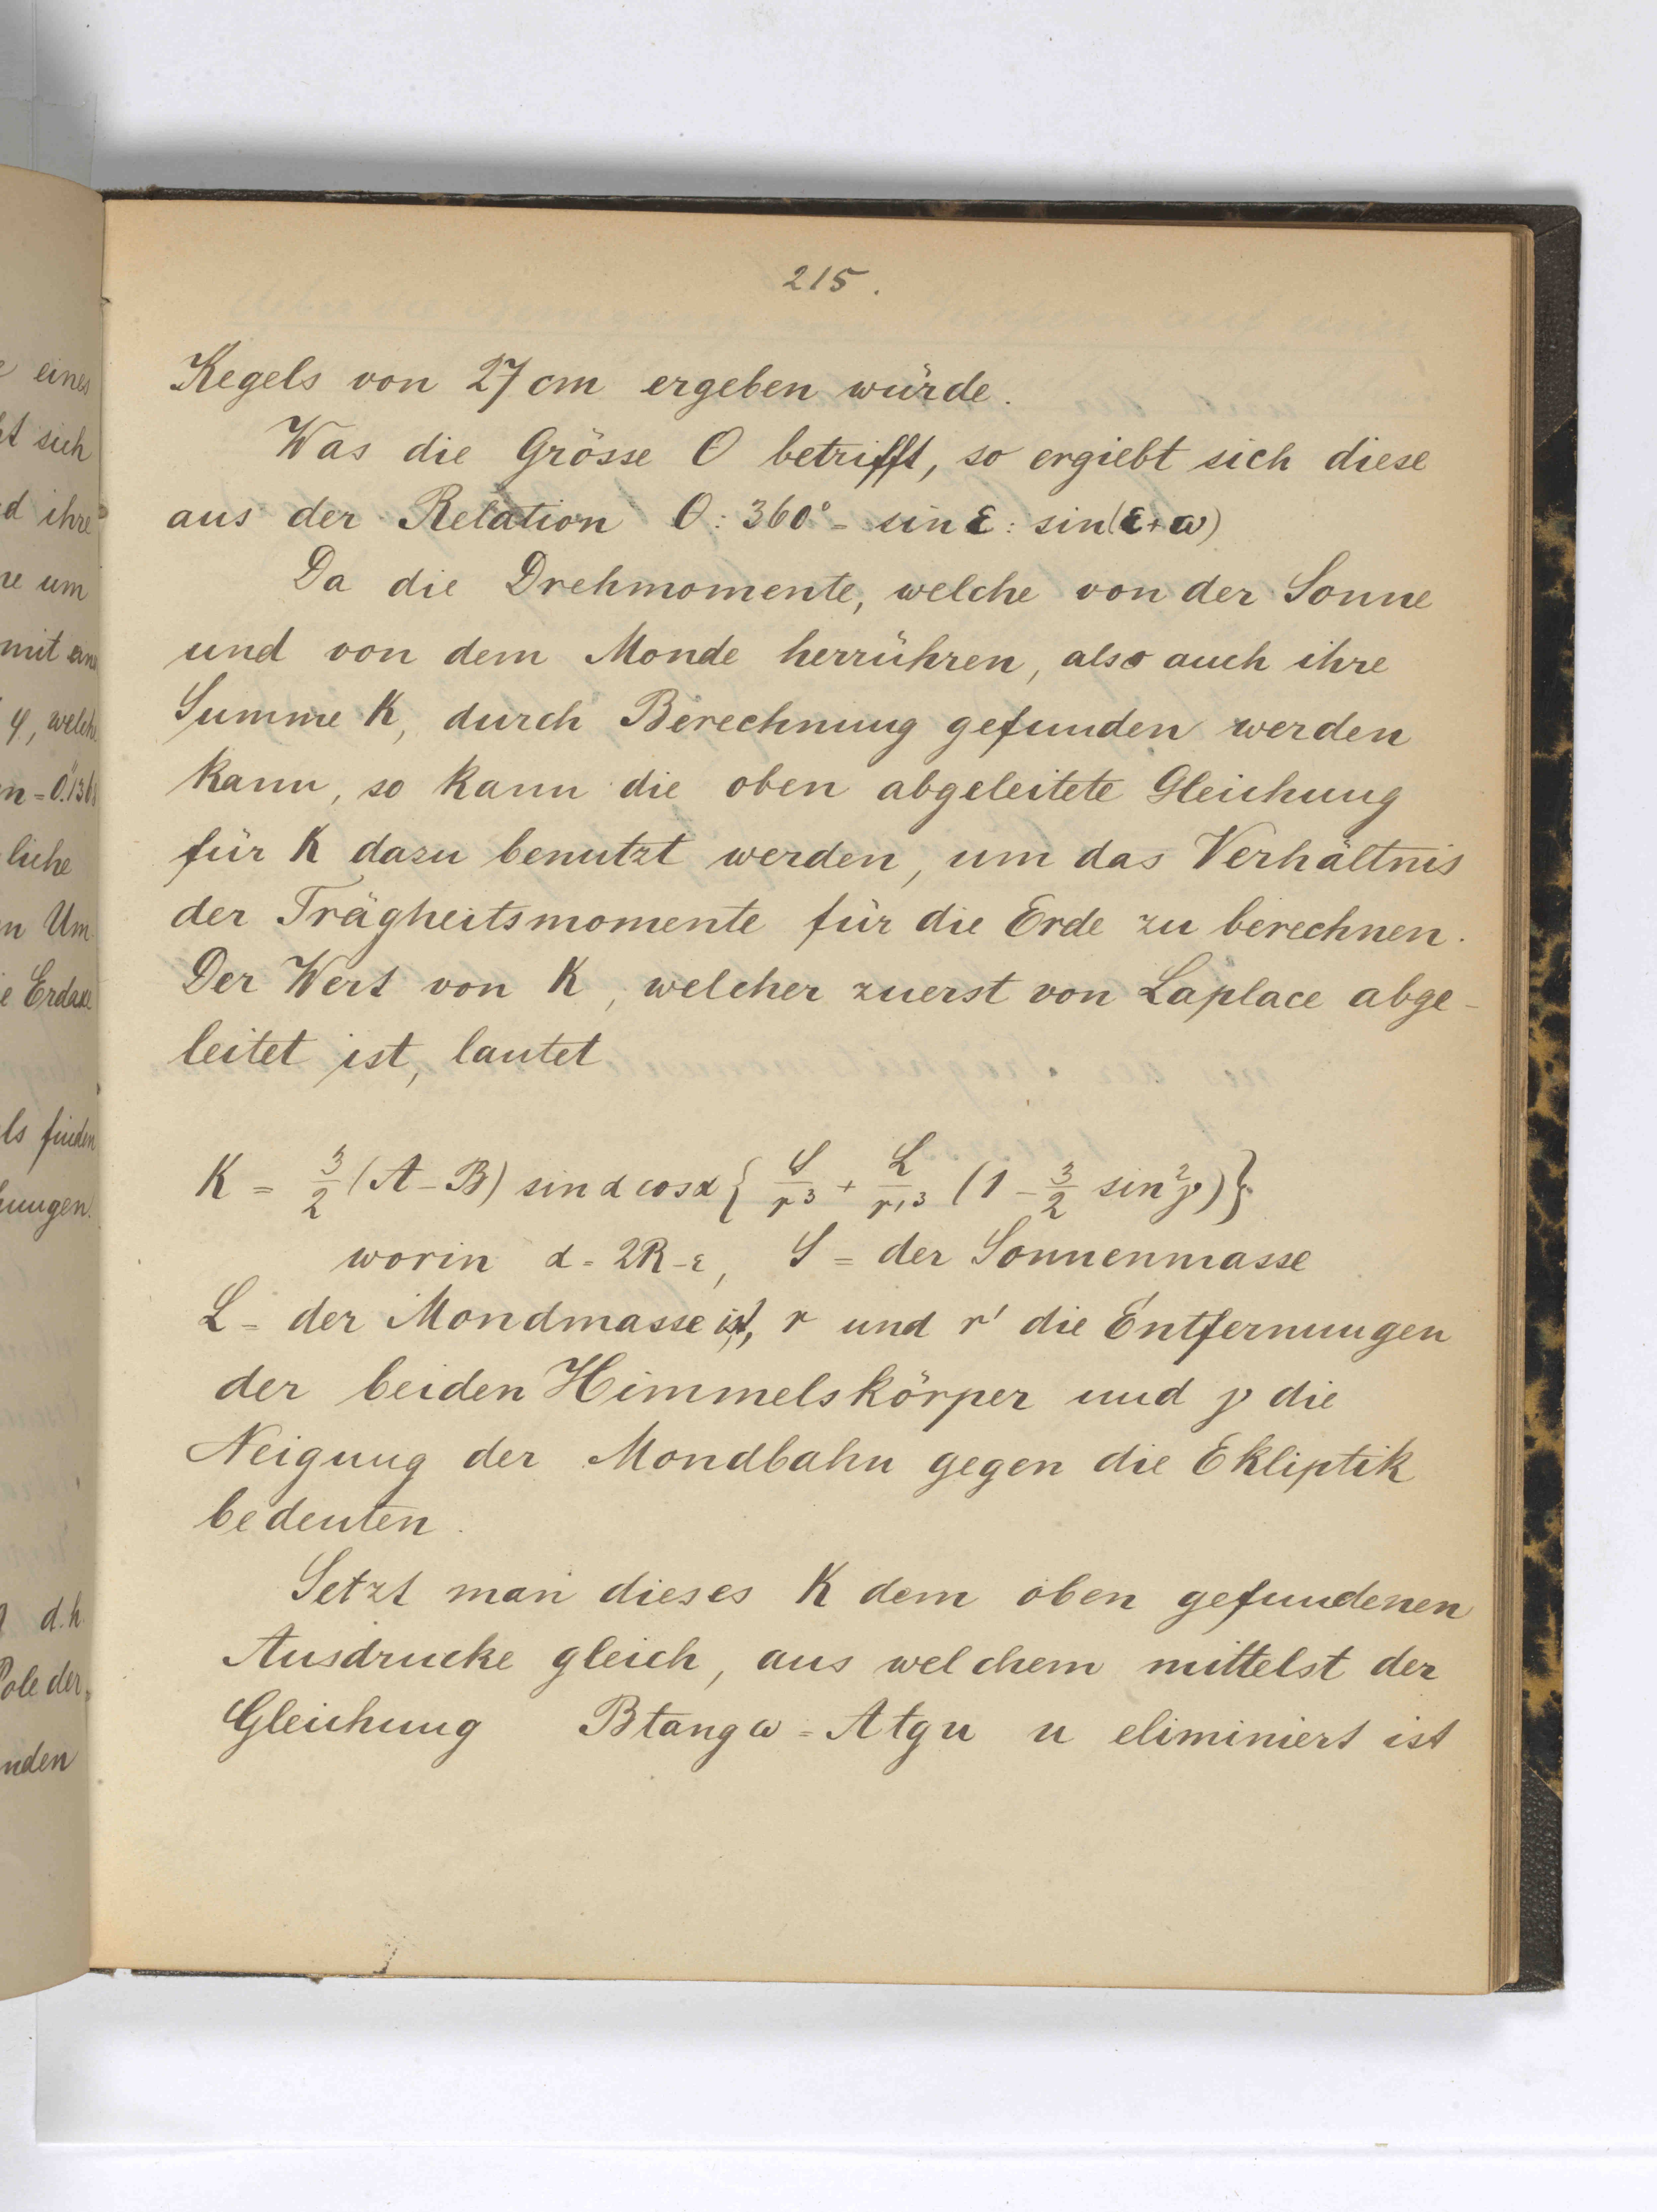 215.
Kegels von 27 cm ergeben würde.
Was die Grösse O betrifft, so ergiebt sich diese
aus der Relation O : 360° = sin ε : sin(ε+ω)
Da die Drehmomente, welche von der Sonne
und von dem Monde herrühren, also auch ihre
Summe K, durch Berechnung gefunden werden
kann, so kann die oben abgeleitete Gleichung
für K dazu benutzt werden, um das Verhältnis
der Trägheitsmomente für die Erde zu berechnen.
Der Wert von K, welcher zuerst von Laplace abge-
leitet ist, lautet
K = 3/2 (A-B) sin α cos α { S/r³ + L/r'³ (1 - 3/2 sin²γ) }
worin α = 2R-ε, S = der Sonnenmasse
L = der Mondmasse ist, r und r' die Entfernungen
der beiden Himmelskörper und γ die
Neigung der Mondbahn gegen die Ekliptik
bedeuten.
Setzt man dieses K dem oben gefundenen
Ausdrucke gleich, aus welchem mittelst der
Gleichung B tang ω = A tg u u eliminiert ist
eines
sich
d ihre
re um
mit eine
φ, welche
n = 0."136
liche
n Um
e Erdaxe
ls finden
d.h.
Pole der
nden